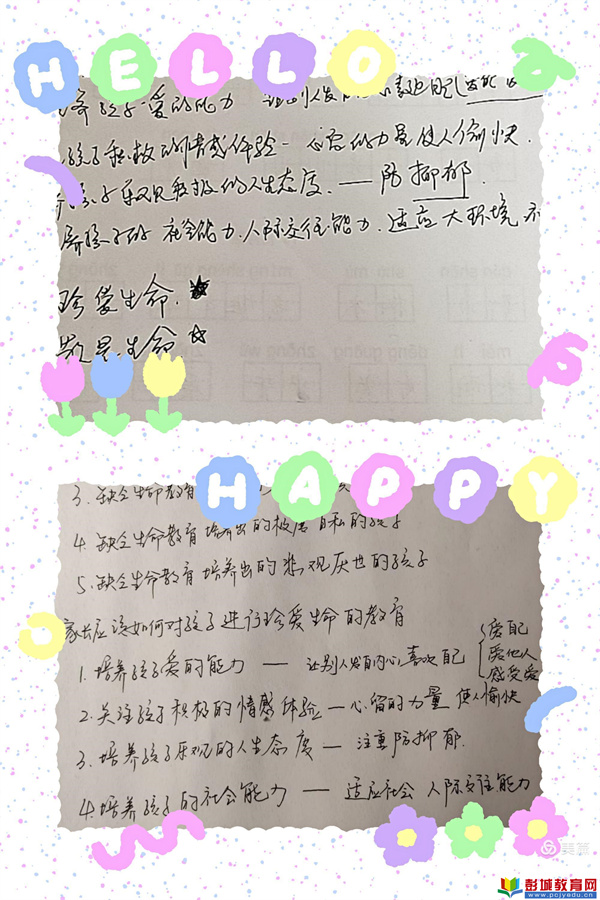 HELLO
养孩子爱的能力 让别人发自内心喜欢自己
孩子积极的情感体验-心留的力量使人愉快.
孩子乐观积极的人生态度.——防抑郁.
养孩子的 社会能力.人际交往能力.适应大环境
珍爱生命.
生命
HAPPY
3.缺乏生命教育
4.缺乏生命教育培养出的极度自私的孩子
5.缺乏生命教育培养出的悲观厌世的孩子
家长应该如何对孩子进行珍爱生命的教育
1.培养孩子爱的能力 — 让别人发自内心喜欢自己 {爱自己
爱他人
感受爱
2.关注孩子积极的情感体验—心留的力量 使人愉快
3.培养孩子乐观的人生态度 — 注重防抑郁.
4.培养孩子的社会能力 — 适应社会 人际交往能力
美篇
彭城教育网
www.pcjyedu.cn